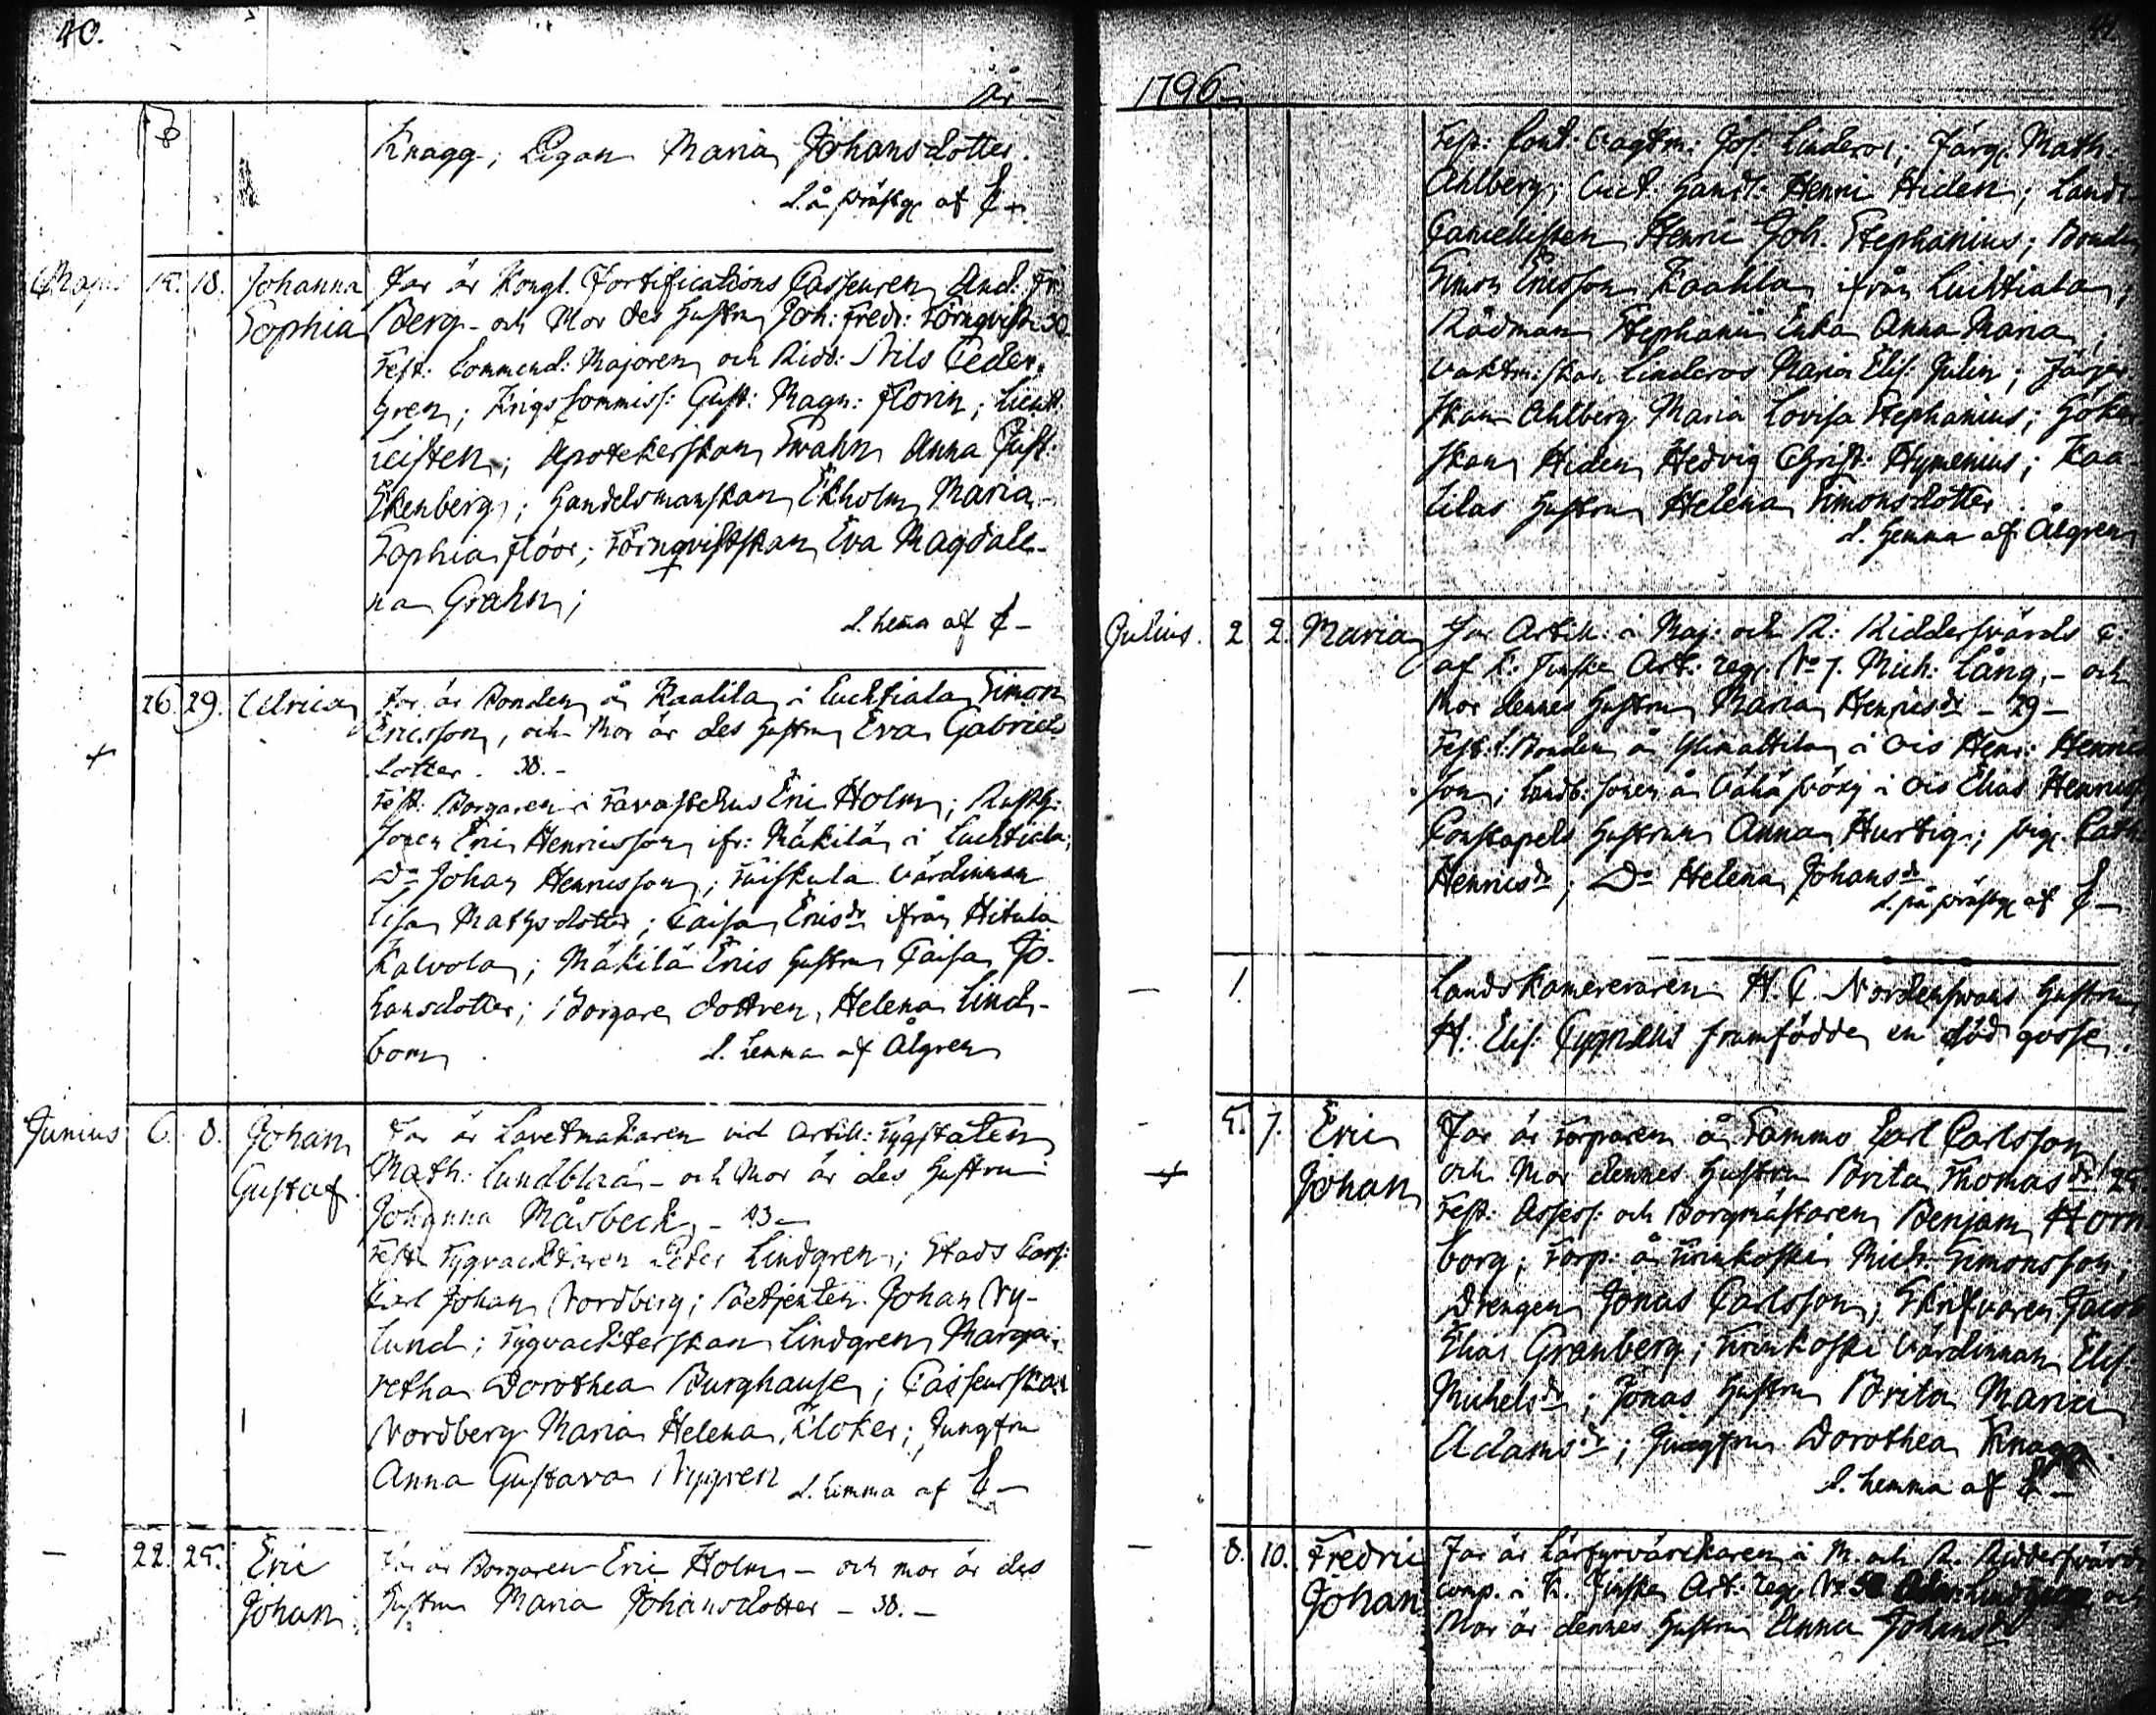 40.
År —
Knagg; Pigan Maria Johansdotter.
d. å prästg. af
Majus 15. 18. Johanna Sophia
Far är Kongl. Fortifications Casseuren And: Fr:
Berg - och Mor des hustru Joh: Fredr: Törnqvist 30.
Test: Commend: Majoren och Ridd: Nils Ceder-
gren; Krigs Commiss: Gust: Magn: Florin; Lieut:
Apotekerskan Svahn Anna Just:
Ekenberg; Handelsmanskan Ekholm Maria
Sophia Flöör; Törnqvistskan Eva Magdale-
na Grahn;
d. hema af
26. 29. Ulrica
Far är Bonden å Kaalila i Luchtiala Simon
Ericsson, och Mor är des hustru Eva Gabriels
dotter. 38.-
Test: Borgaren i Tavastehus Eric Holm; Rusth:
sonen Eric Henricsson ifr: Mäkilä i Luchtiala;
Do Johan Henricsson; Värdinnan
Lisa Matsdotter; Caisa Ericsdr ifrån Hitula
Kalvola; Mäkilä Erics hustru Caisa Jo-
hansdotter; Borgare dottren Helena Lind-
bom
d. hemma af Ålgren
Junius 6. 8. Johan Gustaf.
Far är Lavetmakaren vid Artill: Tygstaten
Math: Lundblad - och Mor är des hustru
Johanna Måsbeck - 43 -
Test: Tygvacktaren Peter Lindgren; Stads Cass:
Carl Johan Nordberg; Betjenten Johan Ny-
lund; Tygvackterskan Lindgren Marga-
retha Dorothea Burghausen; Casseurskan
Nordberg Maria Helena Kloker; Jungfru
Anna Gustava Nygren
d. hemma af
22. 25. Eric Johan
Far är Borgaren Eric Holm - och mor är des
hustru Maria Johansdotter - 38. -
1796.
41.
Test: Vagtm: Jos. Linderos; Färg: Math:
Ahlberg; Handl: Henric Hiden; Lands
Cancellisten Henric Joh. Stephanius; Bonden
Simon Ericsson Kaalila ifrån Luchtiala;
Rådman Stephanii Enka Anna Maria;
Vaktm:skan Linderos Maria Elis. Julin; Färger-
skan Ahlberg Maria Lovisa Stephanius; Höker
skan Hiden Hedvig Christ: Hymenius; Kaa-
lilas hustru Helena Simonsdotter
d. hemma af Ålgren
Julius. 2 2. Maria
Far Artill: i Maj: och R: Riddersvärds C:
af K: Finska Art: reg: No 7. Mich: Lång - och
Mor dennes hustru Maria Henricsdr - 29 -
Test: Bonden å Ylimattila i Ois Henr: Henrics
son; Landb: sonen å i Ois Elias Henrics
Constapels hustrun Anna Hurtig; pig. Cath:
Henricsdr; Do Helena Johansdr
d. på prästg. af
1.
Landskamereraren H. C. Nordensvans hustru
H. Elis. Cygnæus framfödde en död gosse.
5. 7. Eric Johan
Far är Torparen å Sammo Carl Carlsson
och Mor dennes hustru Brita Thomasdr 25
Test: Assess: och Borgmästaren Benjam: Horn
borg; Torp: å Mich: Simonsson,
Drengen Jonas Carlsson; Skrifvaren Jacob
Elias Granberg; Värdinnan Elis.
Michelsdr; Jonas hustru Brita Maria
Adamsdr; Jungfru Dorothea Knagg.
d. hemma af
8. 10. Fredric Johan
Far är Lärfyrvärckaren i M. och R. Riddersvärds
comp. i K. Finska Art: reg: No och
Mor är dennes hustru Anna Johansdr